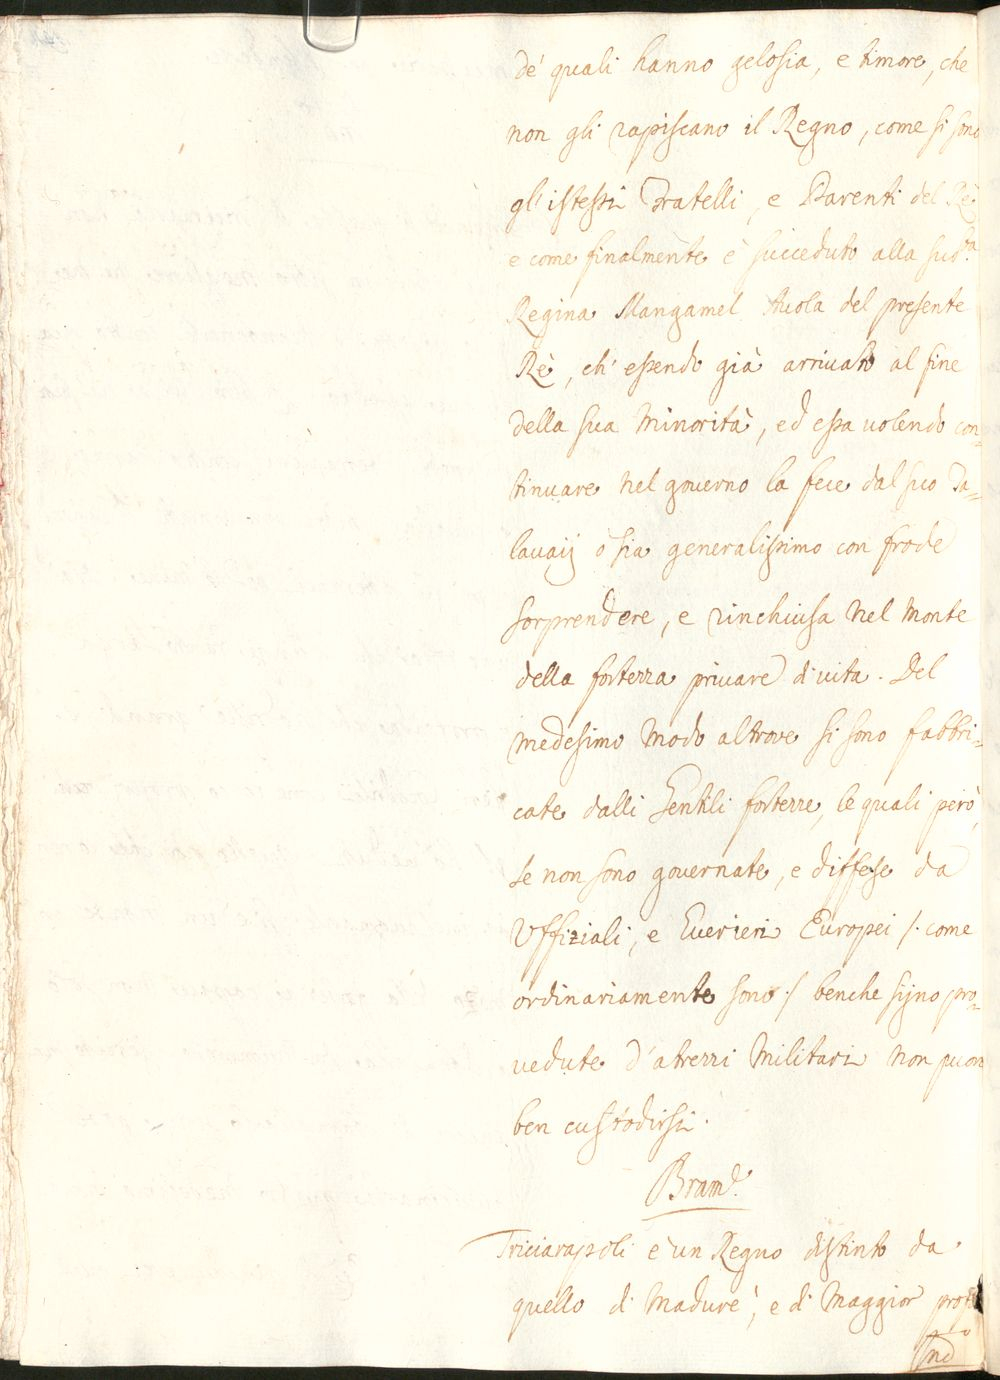 de' quali hanno gelosia, e timore, che
non gli rapiscano il Regno, come si sono
gl'istessi Fratelli, e Parenti del Rè
e come finalmente è succeduto alla sud.ta
Regina Mangamel Avola del presente
Rè, ch'essendo già arrivato al fine
della sua Minorità, ed essa volendo con=
tinuare nel governo la fece dal suo Da=
lavaij ò sia generalissimo con frode
sorprendere, e rinchiusa nel Monte
della fortezza privare di vita. Del
medesimo modo altrove si sono fabbri=
cate dalli Gentili fortezze, le quali però,
se non sono governate, e diffese da
Uffiziali, e Guerieri Europei /. come
ordinariamente sono ./ benche sijno pro=
vedute d'atrezzi Militari non puon
ben custodirsi.
Bram.
Triciarapoli è un Regno distinto da
quello di Madurè, e di Maggior